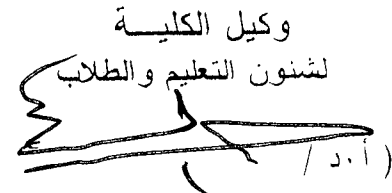 وكيل الكليـــة
لشئون التعليم والطلاب
( أ.د /